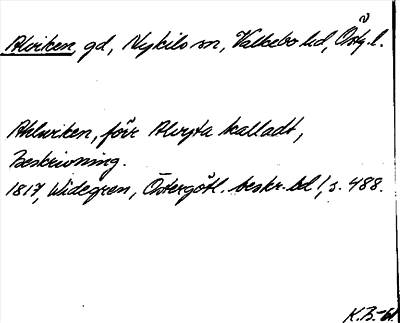 Alviken, gd, Nykils sn, Valkebo hd, Östg. l.
Ahlwiken, förr Alvyta kalladt,
Beskrivning.
1817, Widegren, Östergötl. beskr. bd 1, s. 488.
K.B.-61